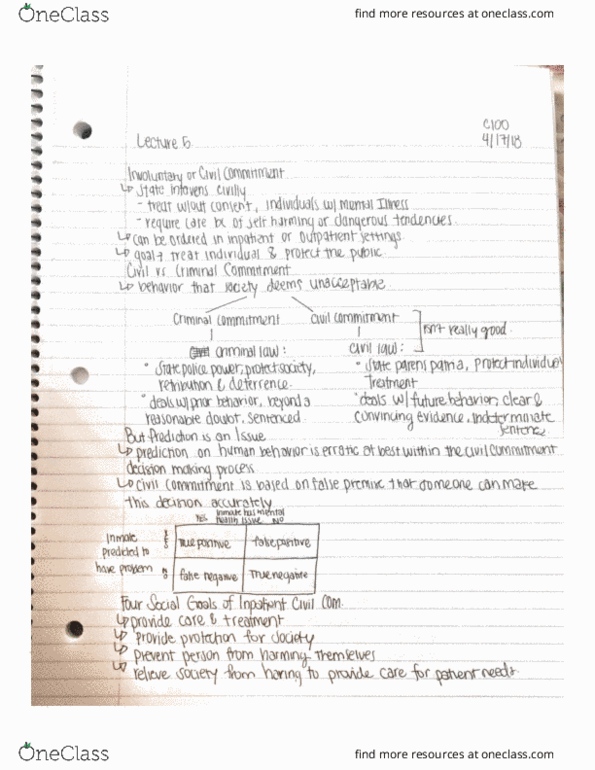 OneClass
find more resources at oneclass.com
C100
Lecture 5
4/17/18
Involuntary or Civil Commitment
↳ State intervens civilly
- treat w/out consent, individuals w/ Mental Illness
- require care bc of self harming or dangerous tendencies.
↳ can be ordered in inpatient or outpatient settings.
↳ goal → treat individual & protect the public
Civil vs Criminal Commitment
↳ behavior that society deems unacceptable
Criminal commitment
Civil commitment
isn't really good.
criminal law:
civil law:
• State police power, protect society,
retribution & deterrence.
• deals w/ prior behavior, beyond a
reasonable doubt, sentenced
• State parens patria, protect individual
Treatment
• deals w/ future behavior, clear &
convincing evidence, indeterminate
sentence
But Prediction is an Issue
↳ prediction on human behavior is erratic at best within the civil commitment
decision making process
↳ civil commitment is based on false premise that someone can make
this decision accurately
Inmate has mental
Yes health issue NO
Inmate
predicted to
have problem
Yes
NO
True positive
false positive
false negative
True negative
Four Social Goals of Inpatient Civil Com.
↳ provide care & treatment
↳ provide protection for society
↳ prevent person from harming themselves
↳ relieve society from having to provide care for patient needs.
OneClass
find more resources at oneclass.com